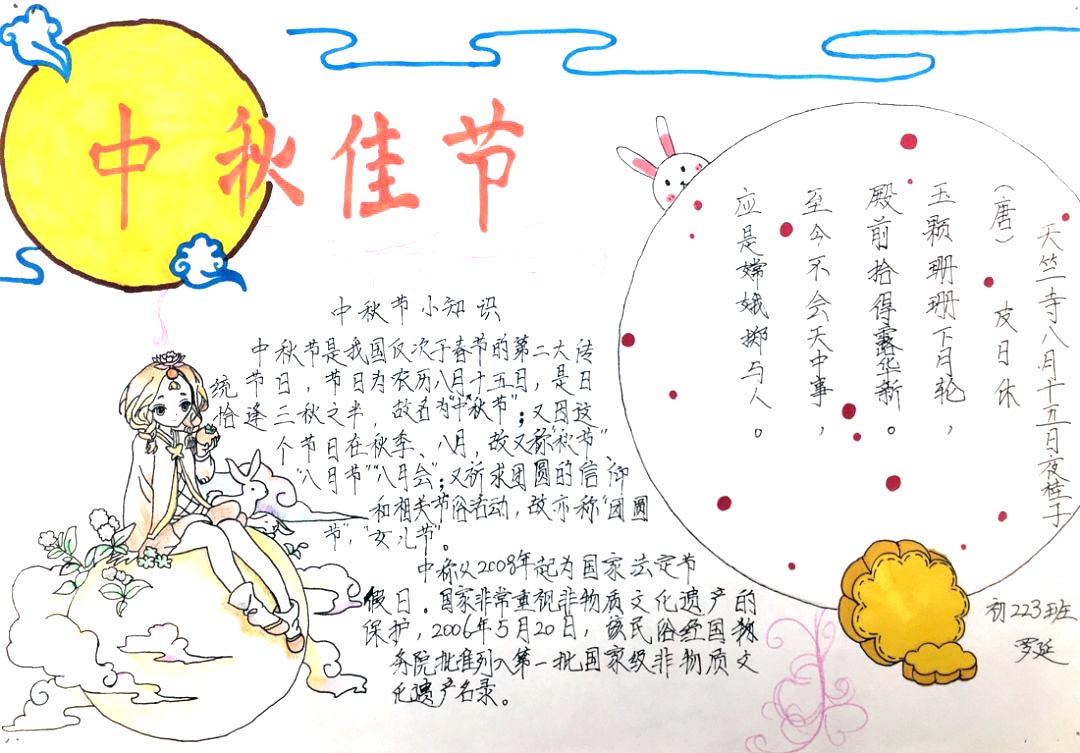 中秋佳节
中秋节小知识
中秋节是我国仅次于春节的第二大传
统节日，节日为农历八月十五日，是日
恰逢三秋之半，故名为“中秋节”；又因这
个节日在秋季、八月，故又称“秋节”
“八月节”“八月会”；又祈求团圆的信仰
和相关节俗活动，故亦称“团圆
节”，“女儿节”。
中秋从2008年起为国家法定节
假日。国家非常重视非物质文化遗产的
保护，2006年5月20日，该民俗经国务
务院批准列入第一批国家级非物质文
化遗产名录。
天竺寺八月十五日夜桂子
（唐） 皮日休
玉颗珊珊下月轮，
殿前拾得露华新。
至今不会天中事，
应是嫦娥掷与人。
初223班
罗延